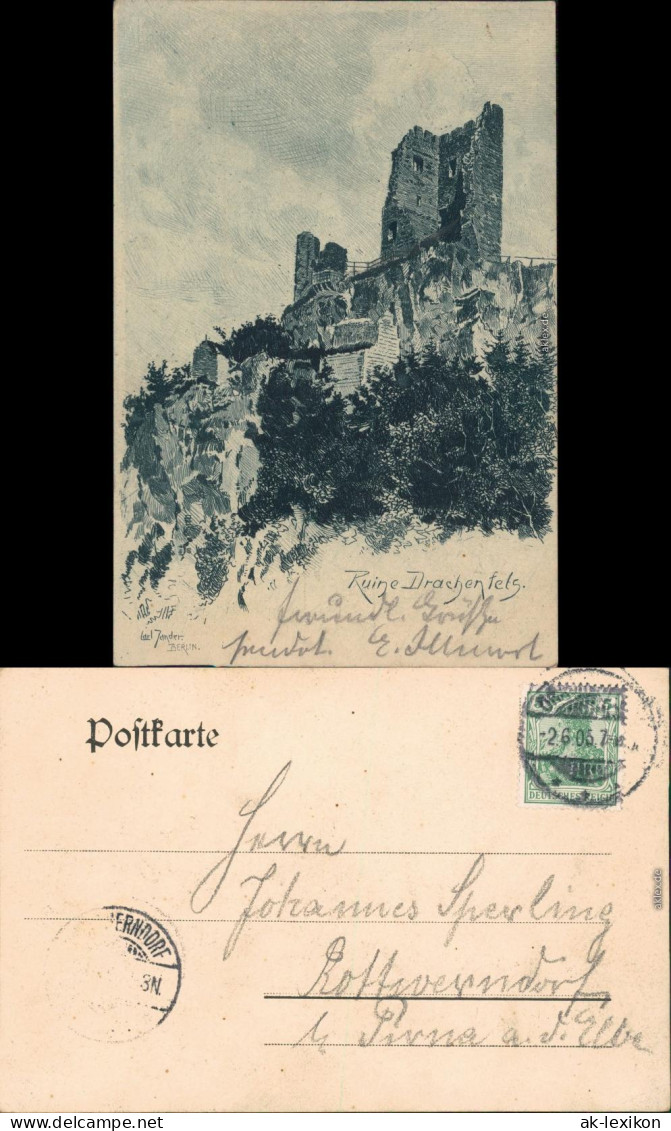 ak-lexikon.de
Ruine Drachenfels.
Carl Jander.
BERLIN.
freundl. Grüße
sendet. E.
Postkarte
-2.6.05.7-
DEUTSCHES REICH
Herrn
Johannes Sperling
Rottwerndorf
b. Pirna a. d. Elbe
ERNDORF
3N.
aklexikon.de
www.ak-ansichtskarten.de
ak-lexikon.com